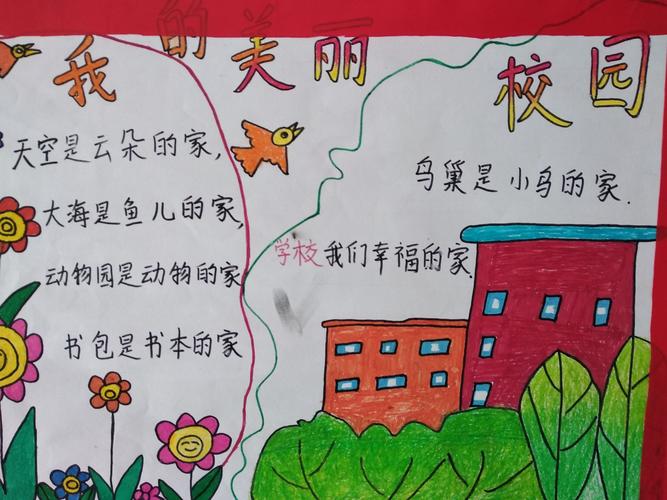 我的美丽校园
天空是云朵的家，
大海是鱼儿的家，
动物园是动物的家
书包是书本的家
鸟巢是小鸟的家.
学校我们幸福的家.